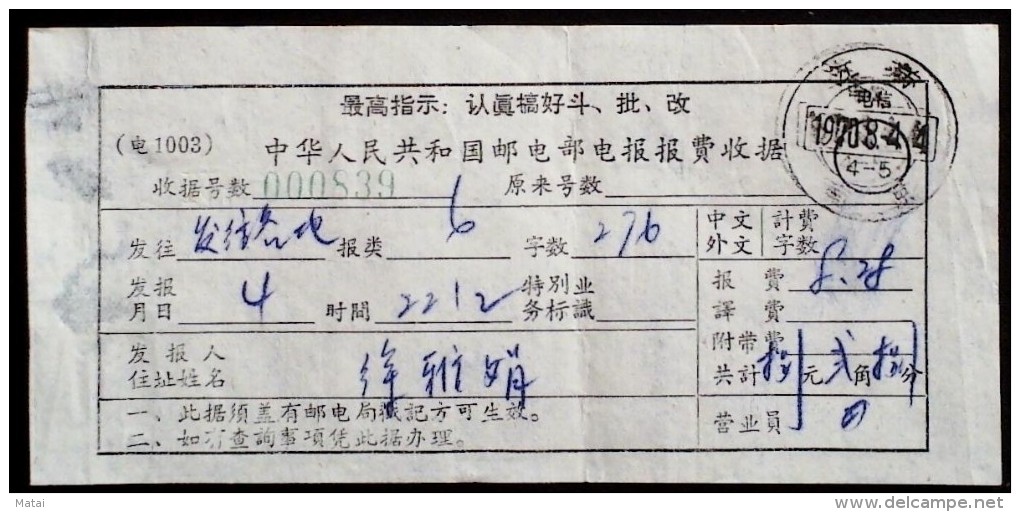 最高指示：认眞搞好斗、批、改
(电1003) 中华人民共和国邮电部电报报费收据
收据号数 000839 原来号数
发往 发往各地 报类 6 字数 276
中文 外文 計費字数
发报月日 4 时間 2212 特别业务标識
报費 8.28
譯費
附带費
发报人住址姓名 徐雅娟
共計 捌元贰角捌分
一、此据须盖有邮电局戳記方可生效。
二、如有查詢事項凭此据办理。
营业员
电信
1970.8.4
4-5
Matai
delcampe.net